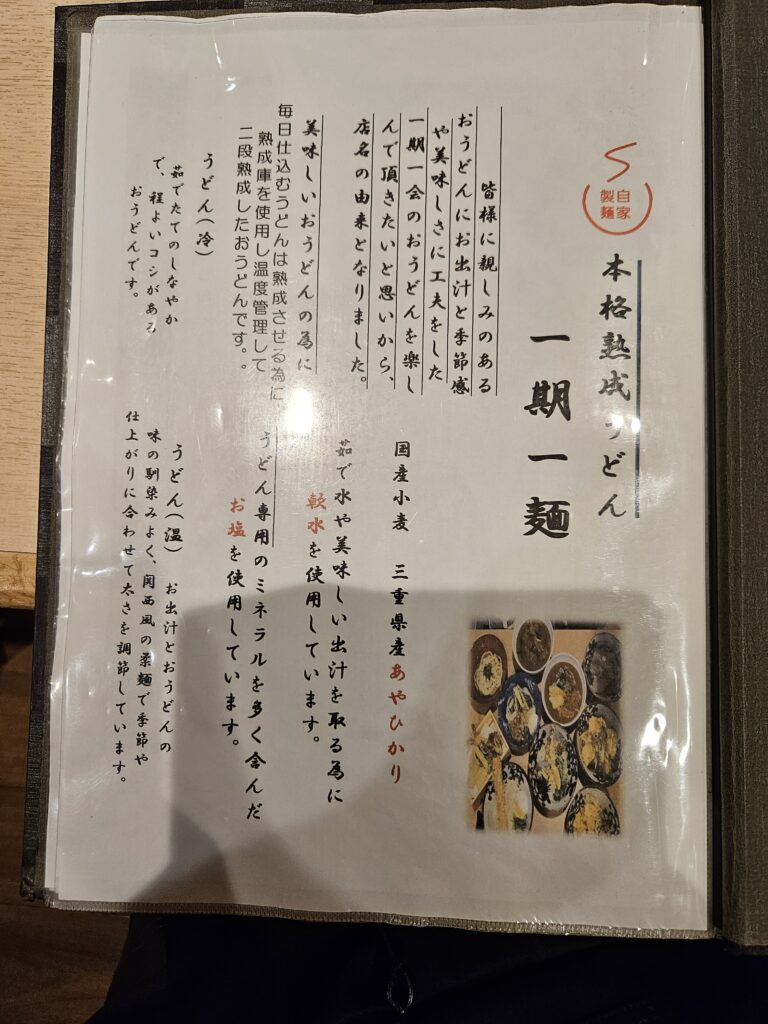 自家
製麺
本格熟成うどん
一期一麺
皆様に親しみのある
おうどんにお出汁と季節感
や美味しさに工夫をした
一期一会のおうどんを楽し
んで頂きたいと思いから、
店名の由来となりました。
美味しいおうどんの為に
毎日仕込むうどんは熟成させる為に
熟成庫を使用し温度管理して
二段熟成したおうどんです。。
うどん(冷)
茹でたてのしなやか
で、程よいコシがある
おうどんです。
国産小麦 三重県産あやひかり
茹で水や美味しい出汁を取る為に
軟水を使用しています。
うどん専用のミネラルを多く含んだ
お塩を使用しています。
うどん(温) お出汁とおうどんの
味の馴染みよく、関西風の柔麺で季節や
仕上がりに合わせて太さを調節しています。